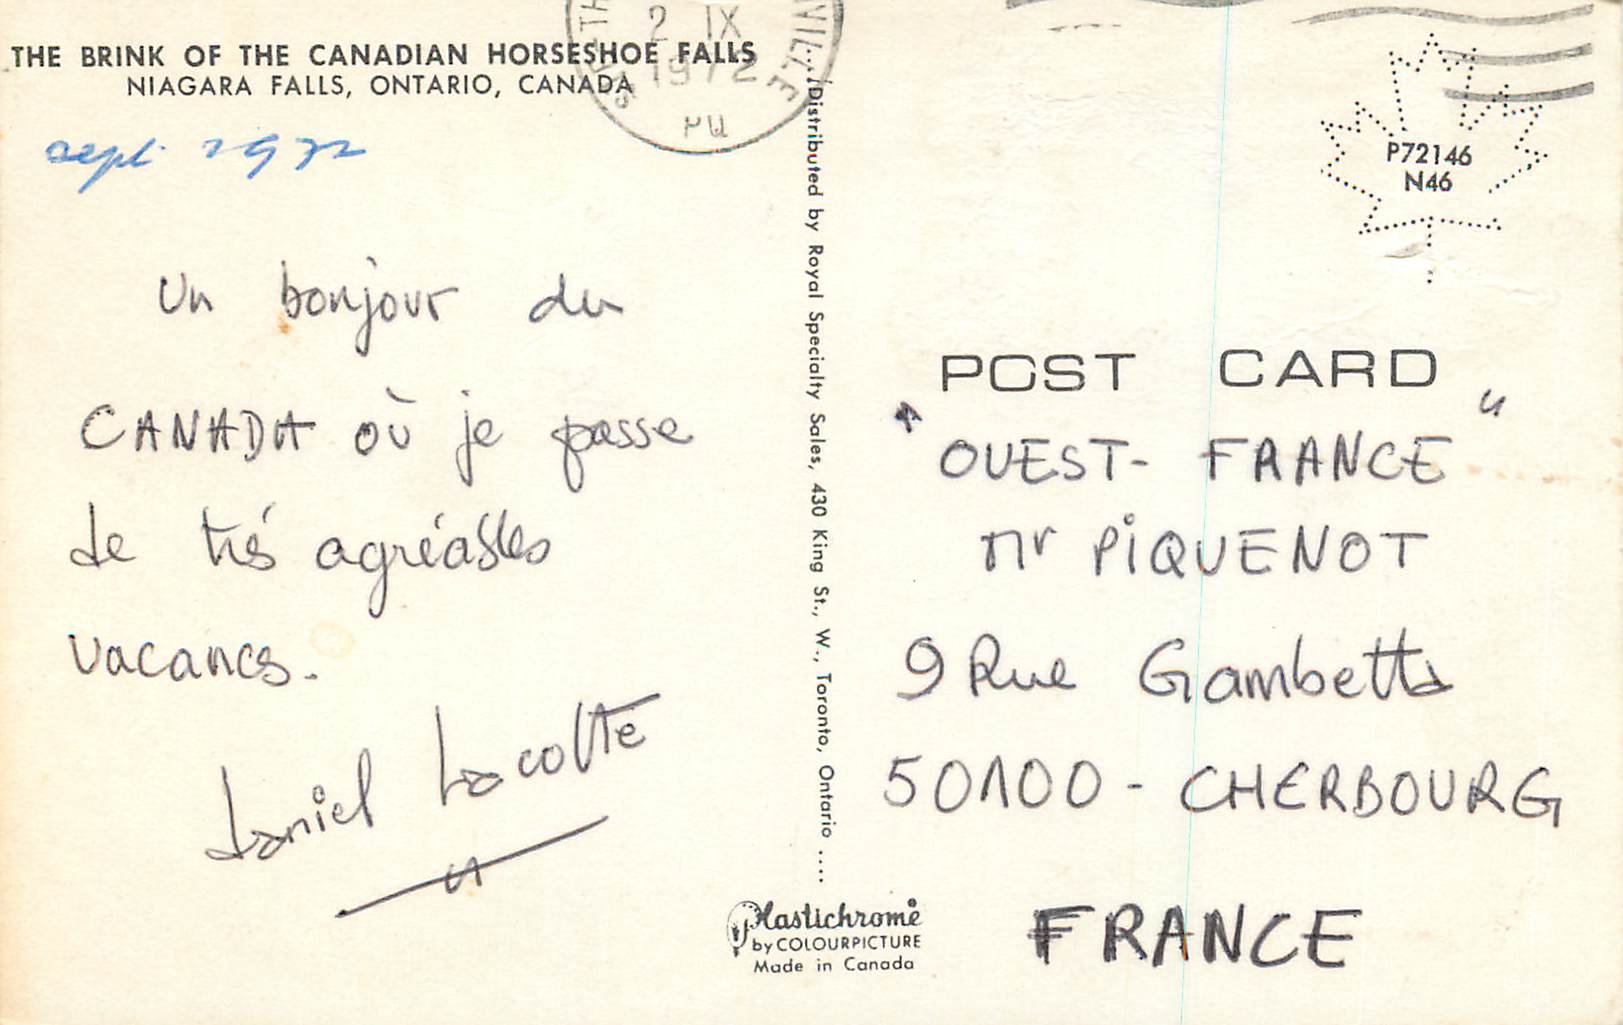 THE BRINK OF THE CANADIAN HORSESHOE FALLS
NIAGARA FALLS, ONTARIO, CANADA
2 IX
1972
PQ
sept 1972
Un bonjour du
CANADA où je passe
de très agréables
vacances.
Daniel Lacotte
Distributed by Royal Specialty Sales, 430 King St., W., Toronto, Ontario ....
Plastichrome
by COLOURPICTURE
Made in Canada
P72146
N46
POST CARD
"OUEST-FRANCE"
Mr PIQUENOT
9 Rue Gambetta
50100 - CHERBOURG
FRANCE